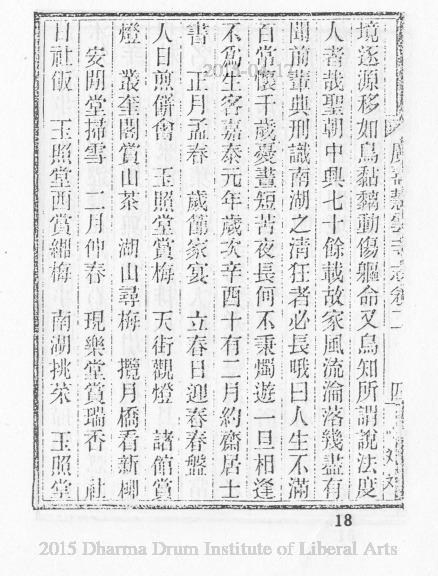 廣壽慧雲寺志卷二 四
境逐源移如鳥黏黐動傷軀命又烏知所謂說法度
人者哉聖朝中興七十餘載故家風流淪落幾盡有
聞前輩典刑識南湖之清狂者必長哦曰人生不滿
百常懷千歲憂晝短苦夜長何不秉燭遊一旦相逢
不爲生客嘉泰元年歲次辛酉十有二月約齋居士
書 正月孟春 歲節家宴 立春日迎春春盤
人日煎餅會 玉照堂賞梅 天街觀燈 諸館賞
燈 叢奎閣賞山茶 湖山尋梅 攬月橋看新柳
安閒堂掃雪 二月仲春 現樂堂賞瑞香 社
日社飯 玉照堂西賞緗梅 南湖挑菜 玉照堂
18
2015 Dharma Drum Institute of Liberal Arts